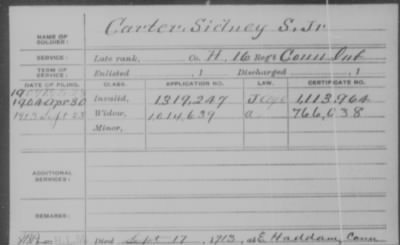 NAME OF SOLDIER: Carter, Sidney S. Jr
SERVICE: Late rank, Co. H, 16 Reg't Conn Inf
TERM OF SERVICE: Enlisted , 1 Discharged , 1
DATE OF FILING. CLASS. APPLICATION NO. LAW. CERTIFICATE NO.
1904 Apr 30 Invalid, 1319,247 1,113,964
1913 Sept 23 Widow, 1,014,639 a 766,638
Minor,
ADDITIONAL SERVICES:
REMARKS:
Died Sept 17, 1913, at E. Haddam, Conn